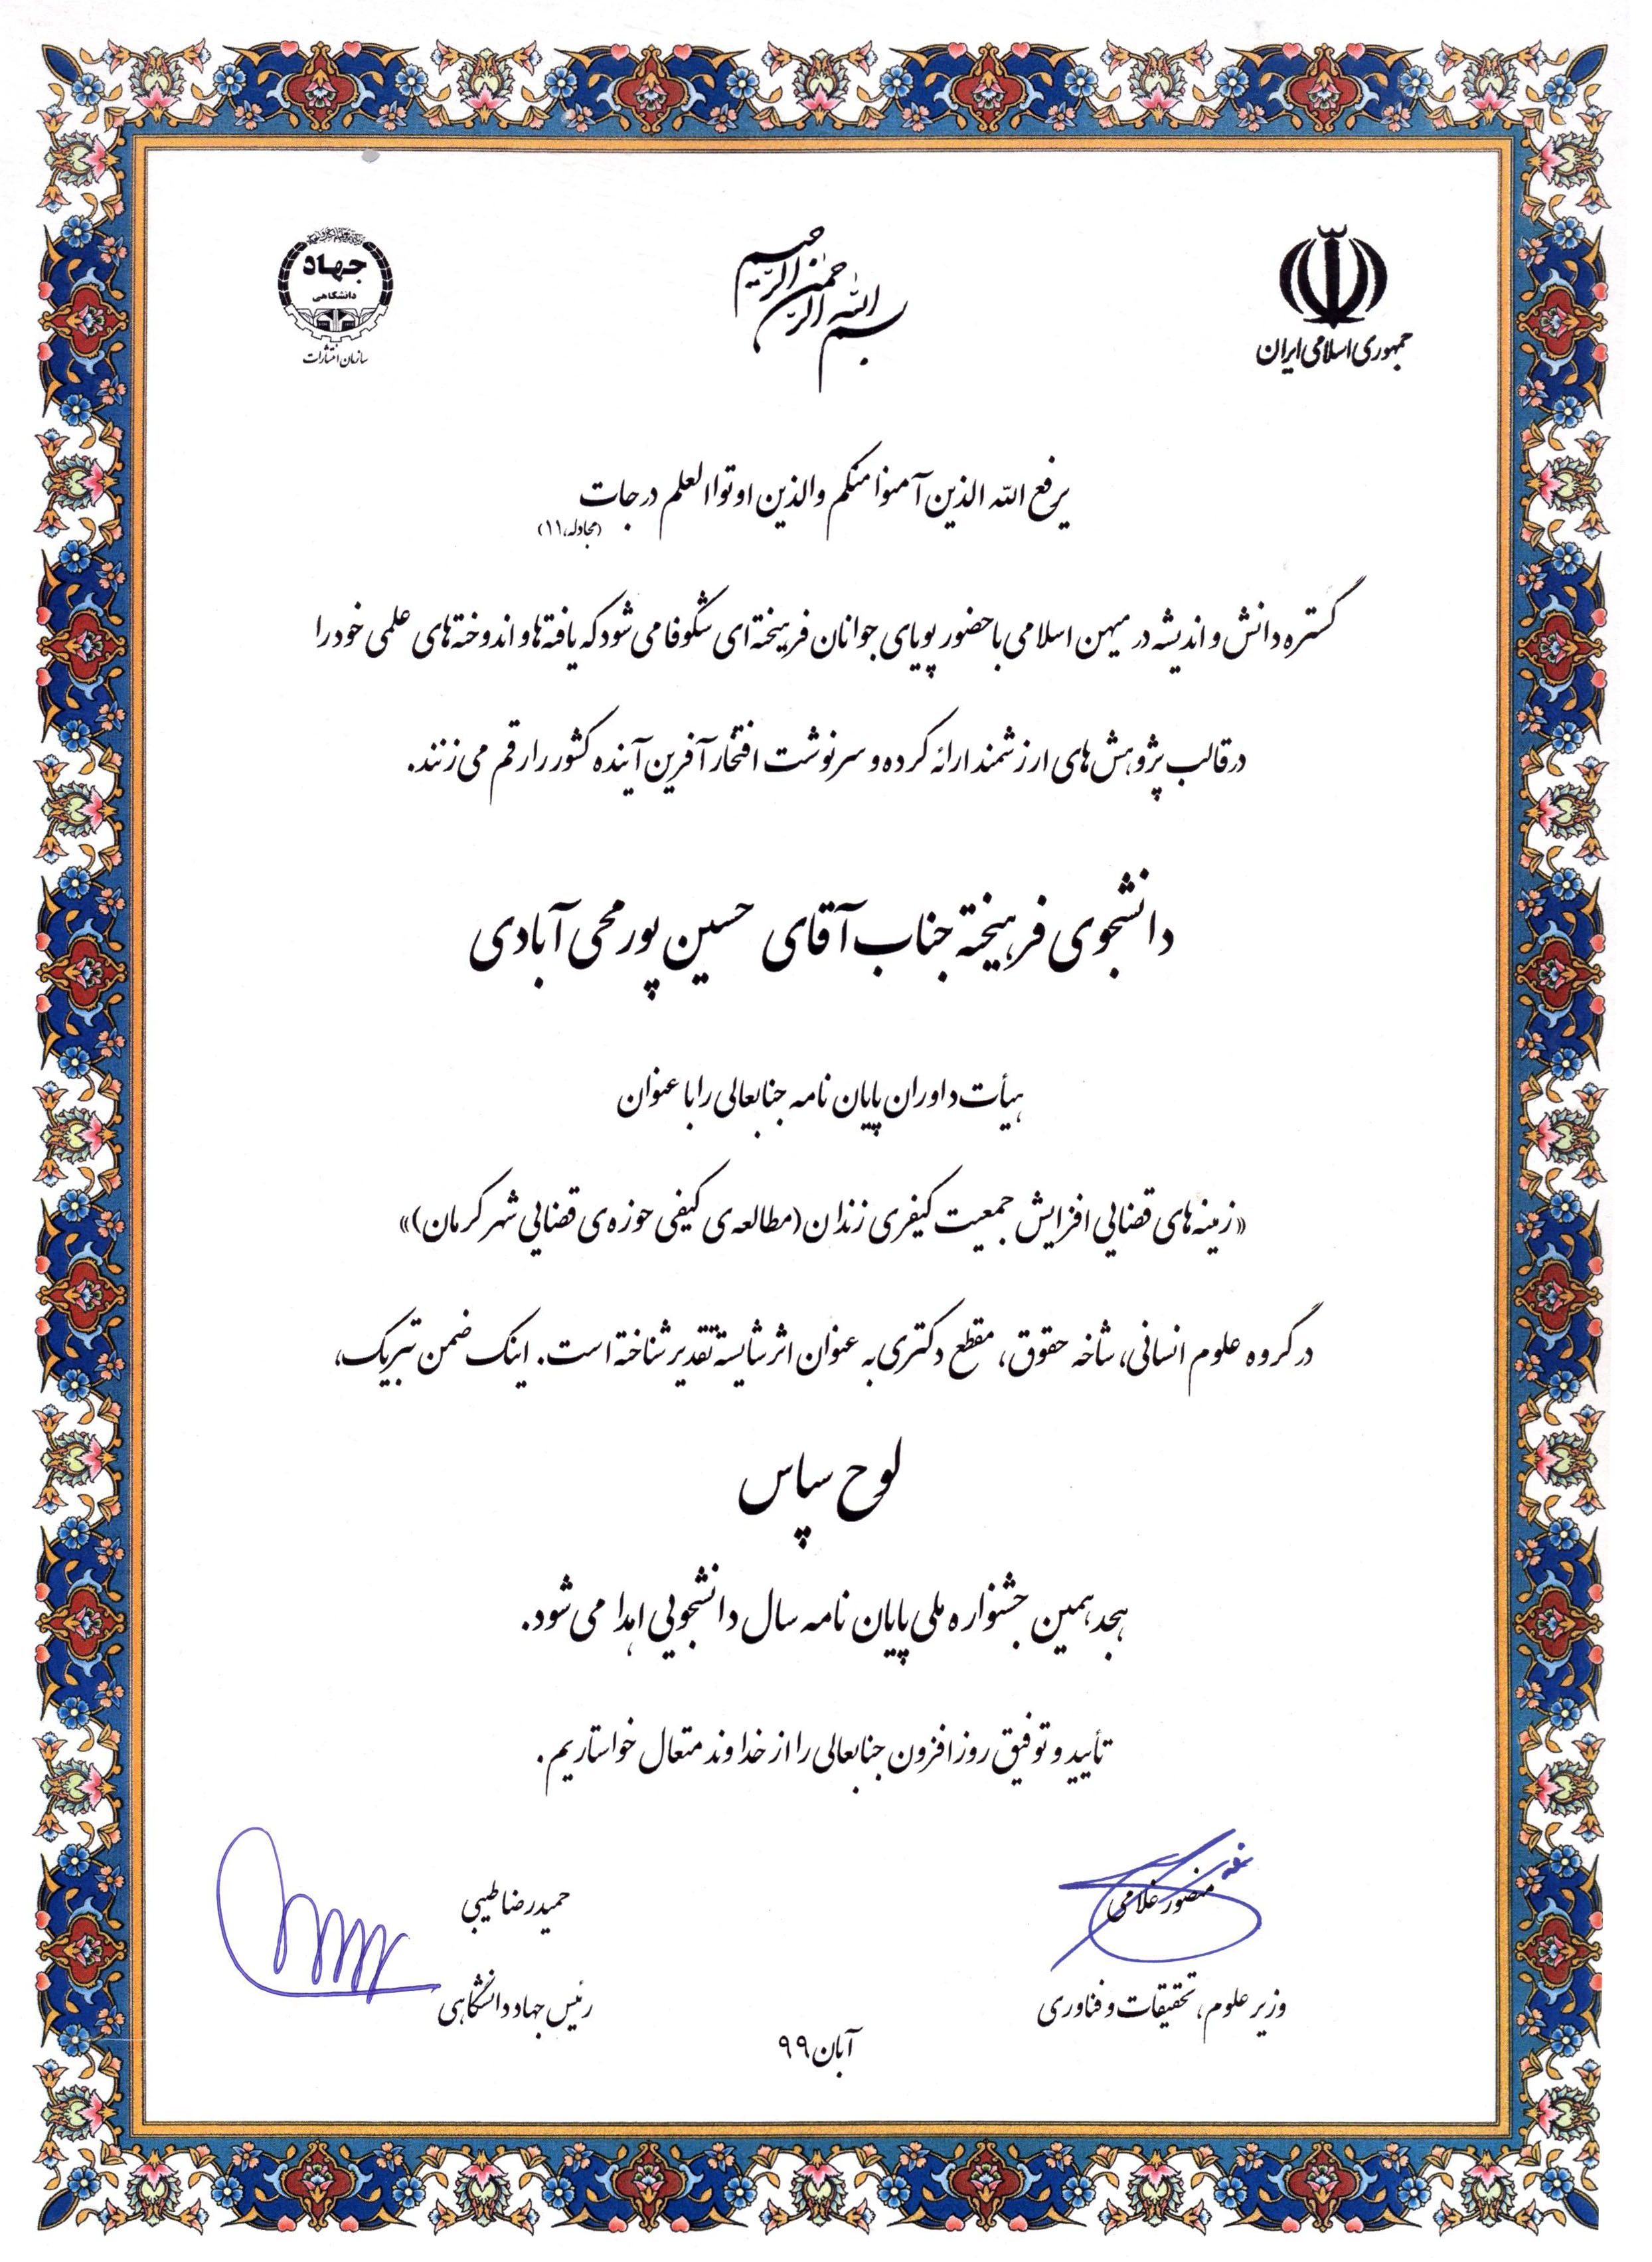 جمهوری اسلامی ایران
بسم الله الرحمن الرحیم
جهاد
دانشگاهی
سازمان انتشارات
یرفع الله الذین آمنوا منکم والذین اوتوا العلم درجات
(مجادله،۱۱)
گستره دانش و اندیشه در میهن اسلامی با حضور پویای جوانان فرهیخته‌ای شکوفا می‌شود که یافته‌ها و اندوخته‌های علمی خود را
در قالب پژوهش‌های ارزشمند ارائه کرده و سرنوشت افتخارآفرین آینده کشور را رقم می‌زنند.
دانشجوی فرهیخته جناب آقای حسین پورمحی آبادی
هیأت داوران پایان نامه جنابعالی را با عنوان
«زمینه‌های قضایی افزایش جمعیت کیفری زندان (مطالعه‌ی کیفی حوزه‌ی قضایی شهر کرمان)»
در گروه علوم انسانی، شاخه حقوق، مقطع دکتری به عنوان اثر شایسته تقدیر شناخته است. اینک ضمن تبریک،
لوح سپاس
هجدهمین جشنواره ملی پایان نامه سال دانشجویی اهدا می‌شود.
تأیید و توفیق روزافزون جنابعالی را از خداوند متعال خواستاریم.
منصور غلامی
وزیر علوم، تحقیقات و فناوری
حمیدرضا طیبی
رئیس جهاددانشگاهی
آبان ۹۹